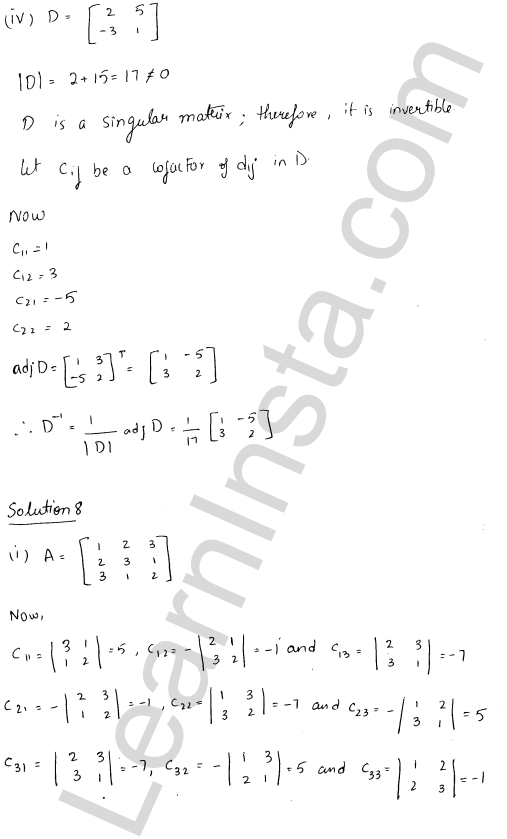 (iv) D = [ 2 5 ; -3 1 ]
|D| = 2+15 = 17 ≠ 0
D is a singular matrix; therefore, it is invertible.
Let Cij be a cofactor of dij in D.
Now
C11 = 1
C12 = 3
C21 = -5
C22 = 2
adj D = [ 1 3 ; -5 2 ]^T = [ 1 -5 ; 3 2 ]
∴ D^-1 = 1/|D| adj D = 1/17 [ 1 -5 ; 3 2 ]
Solution 8
(i) A = [ 1 2 3 ; 2 3 1 ; 3 1 2 ]
Now,
C11 = | 3 1 ; 1 2 | = 5, C12 = - | 2 1 ; 3 2 | = -1 and C13 = | 2 3 ; 3 1 | = -7
C21 = - | 2 3 ; 1 2 | = -1, C22 = | 1 3 ; 3 2 | = -7 and C23 = - | 1 2 ; 3 1 | = 5
C31 = | 2 3 ; 3 1 | = -7, C32 = - | 1 3 ; 2 1 | = 5 and C33 = | 1 2 ; 2 3 | = -1
LearnInsta.com